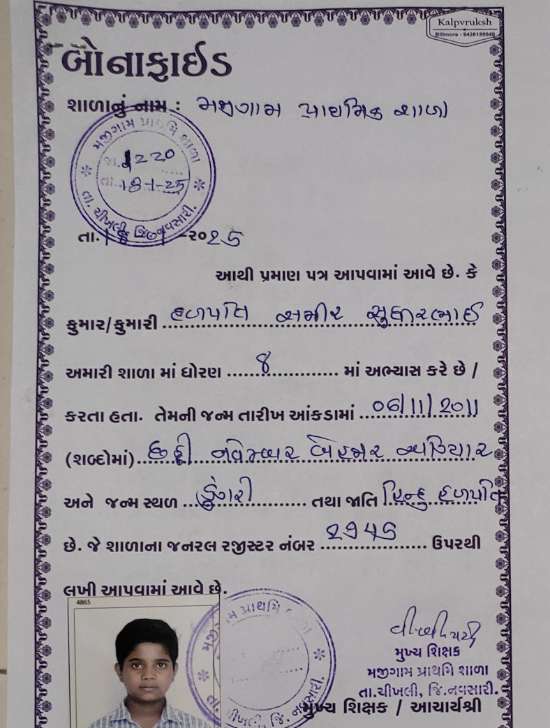 Kalpvruksh
બોનાફાઈડ
શાળાનું નામ : મજીગામ પ્રાથમિક શાળા
મજીગામ પ્રાથમિ શાળા
1220
તા. 18-1-25
તા. ચીખલી, જિ. નવસારી.
તા. 18 1 -૨૦25
આથી પ્રમાણ પત્ર આપવામાં આવે છે. કે
કુમાર/કુમારી હળપતિ સમીર સુકારભાઈ
અમારી શાળા માં ધોરણ 8 માં અભ્યાસ કરે છે /
કરતા હતા. તેમની જન્મ તારીખ આંકડામાં 06/11/2011
(શબ્દોમાં) છઠ્ઠી નવેમ્બર બેહજાર અગિયાર
અને જન્મ સ્થળ ડુંગરી તથા જાતિ હિન્દુ હળપતિ
છે. જે શાળાના જનરલ રજીસ્ટર નંબર ઉપરથી
લખી આપવામાં આવે છે.
4865
મજીગામ પ્રાથમિ શાળા
તા. ચીખલી, જિ. નવસારી.
મુખ્ય શિક્ષક
મજીગામ પ્રાથમિ શાળા
તા.ચીખલી, જિ.નવસારી.
મુખ્ય શિક્ષક / આચાર્યશ્રી